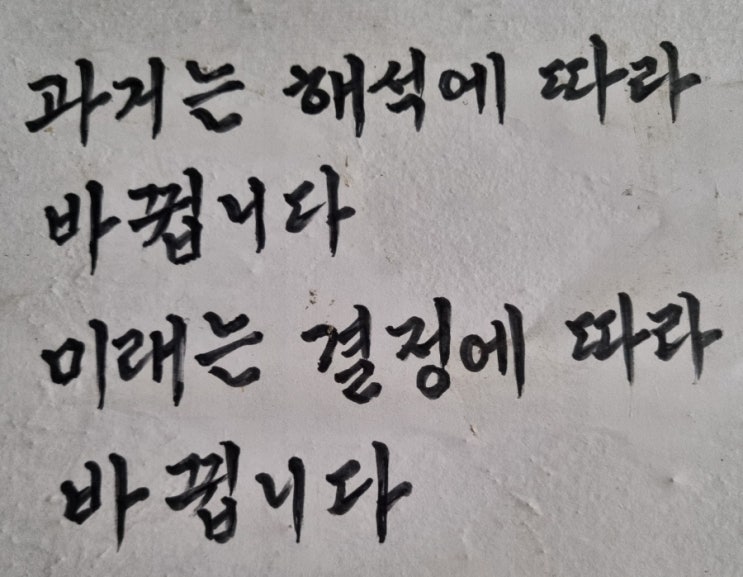 과거는 해석에 따라
바뀝니다
미래는 결정에 따라
바뀝니다